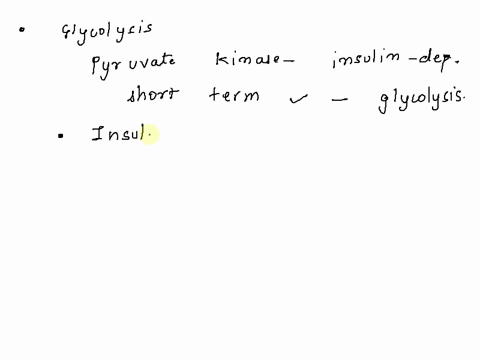 • Glycolysis
Pyruvate kinase- insulin-dep.
short term ✓ - glycolysis.
• Insul.